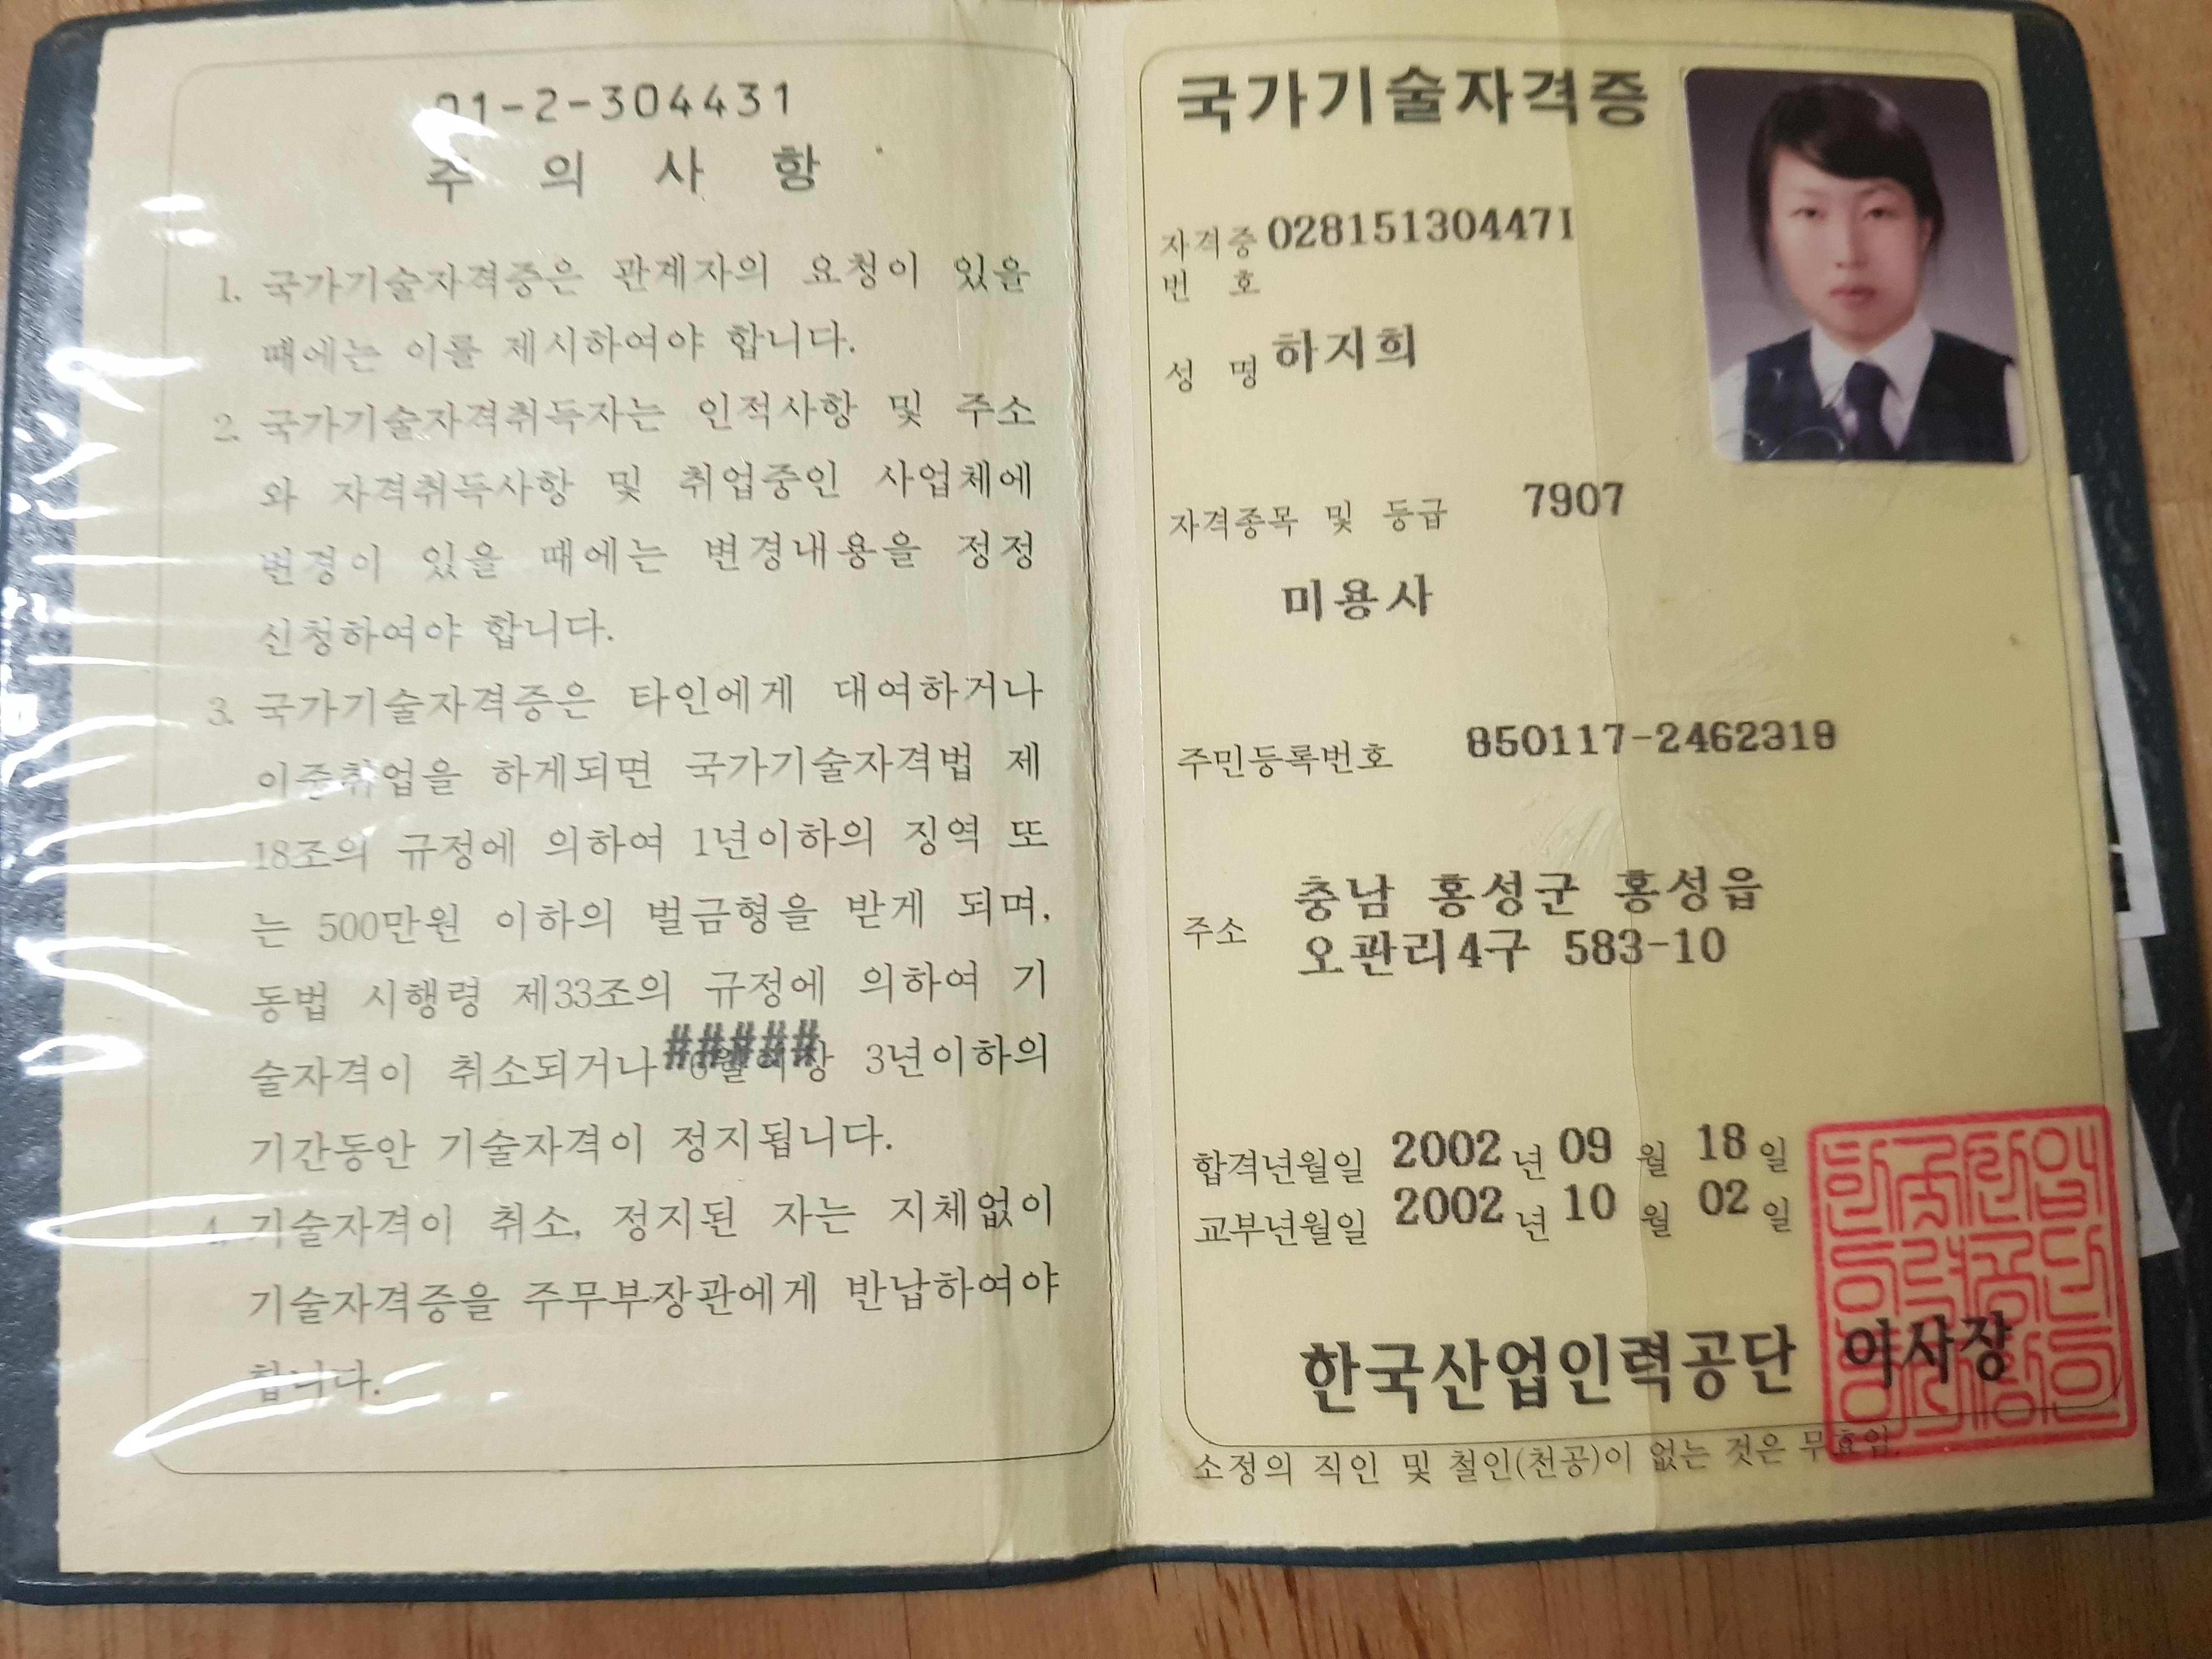 01-2-304431
주 의 사 항
1. 국가기술자격증은 관계자의 요청이 있을
때에는 이를 제시하여야 합니다.
2. 국가기술자격취득자는 인적사항 및 주소
와 자격취득사항 및 취업중인 사업체에
변경이 있을 때에는 변경내용을 정정
신청하여야 합니다.
3. 국가기술자격증은 타인에게 대여하거나
이중취업을 하게되면 국가기술자격법 제
18조의 규정에 의하여 1년이하의 징역 또
는 500만원 이하의 벌금형을 받게 되며,
동법 시행령 제33조의 규정에 의하여 기
#####
술자격이 취소되거나 6월이상 3년이하의
기간동안 기술자격이 정지됩니다.
4. 기술자격이 취소, 정지된 자는 지체없이
기술자격증을 주무부장관에게 반납하여야
합니다.
국가기술자격증
자격증 02815130447I
번 호
성 명 하지희
자격종목 및 등급 7907
미용사
주민등록번호 850117-2462319
주소 충남 홍성군 홍성읍
오관리4구 583-10
합격년월일 2002 년 09 월 18 일
교부년월일 2002 년 10 월 02 일
한국산업인력공단 이사장
소정의 직인 및 철인(천공)이 없는 것은 무효임.